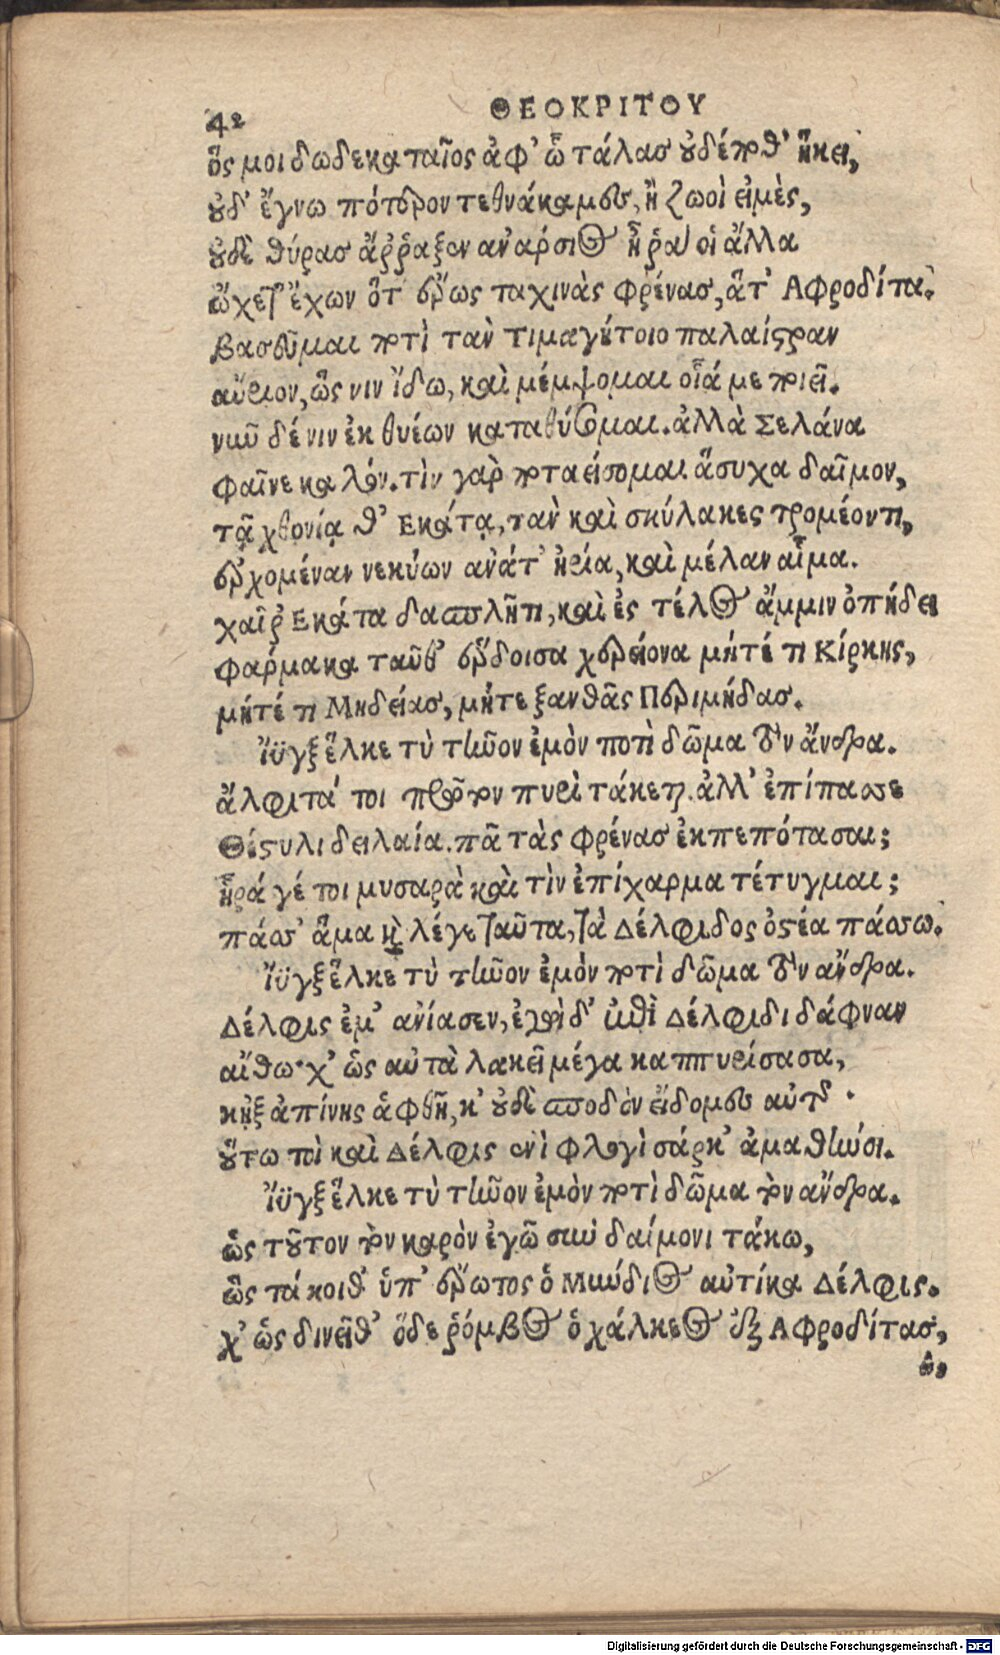 42
ΘΕΟΚΡΙΤΟΥ
ὅς μοι δωδεκαταῖος ἀφ' ὧ τάλας οὐδέποθ' ἥκει,
οὐδ' ἔγνω πότερον τεθνάκαμες, ἢ ζωοὶ εἰμὲς,
οὐδὲ θύρας ἄῤῥαξεν ἀνάρσιος ἦ ῥά οἱ ἄλλα
ᾤχετ' ἔχων ὅτ' ἔρως ταχινὰς φρένας, ἅτ' Αφροδίτα.
βασεῦμαι ποτὶ τὰν τιμαγήτοιο παλαίστραν
αὔριον, ὥς νιν ἴδω, καὶ μέμψομαι οἷά με ποιεῖ.
νῦν δέ νιν ἐκ θυέων καταθύσομαι. ἀλλὰ Σελάνα
φαῖνε καλόν. τὶν γὰρ ποταείσομαι ἅσυχα δαῖμον,
τᾷ χθονίᾳ θ' Εκάτᾳ, τὰν καὶ σκύλακες τρομέοντι,
ἐρχομέναν νεκύων ἀνάτ' ἠρία, καὶ μέλαν αἷμα.
χαῖρ' Εκάτα δασπλῆτι, καὶ ἐς τέλος ἄμμιν ὀπήδει
φάρμακα ταῦθ' ἕρδοισα χερείονα μήτέ τι Κίρκης,
μήτέ τι Μηδείας, μήτε ξανθᾶς Περιμήδας.
Ἴϋγξ ἕλκε τὺ τῆνον ἐμὸν ποτὶ δῶμα τὸν ἄνδρα.
ἄλφιτά τοι πρῶτον πυρὶ τάκεται. ἀλλ' ἐπίπασσε
Θέστυλι δειλαία. πᾶ τὰς φρένας ἐκπεπότασαι;
ἦρά γέ τοι μυσαρὰ καὶ τὶν ἐπίχαρμα τέτυγμαι;
πάσσ' ἅμα καὶ λέγε ταῦτα, τὰ Δέλφιδος ὀστέα πάσσω.
Ἴϋγξ ἕλκε τὺ τῆνον ἐμὸν ποτὶ δῶμα τὸν ἄνδρα.
Δέλφις ἔμ' ἀνίασεν, ἐγὼ δ' ἐπὶ Δέλφιδι δάφναν
αἴθω· χ' ὡς αὐτὰ λακεῖ μέγα καππυρίσασα,
κἠξαπίνης ἅφθη, κ' οὐδὲ σποδὸν εἴδομες αὐτᾶς·
οὕτω τοὶ καὶ Δέλφις ἐνὶ φλογὶ σάρκ' ἀμαθύνοι.
Ἴϋγξ ἕλκε τὺ τῆνον ἐμὸν ποτὶ δῶμα τὸν ἄνδρα.
ὡς τοῦτον τὸν καρὸν ἐγὼ σὺν δαίμονι τάκω,
ὣς τάκοιθ' ὑπ' ἔρωτος ὁ Μύνδιος αὐτίκα Δέλφις.
χ' ὡς δινεῖθ' ὅδε ῥόμβος ὁ χάλκεος ἐξ Αφροδίτας,
ὣς
Digitalisierung gefördert durch die Deutsche Forschungsgemeinschaft - DFG